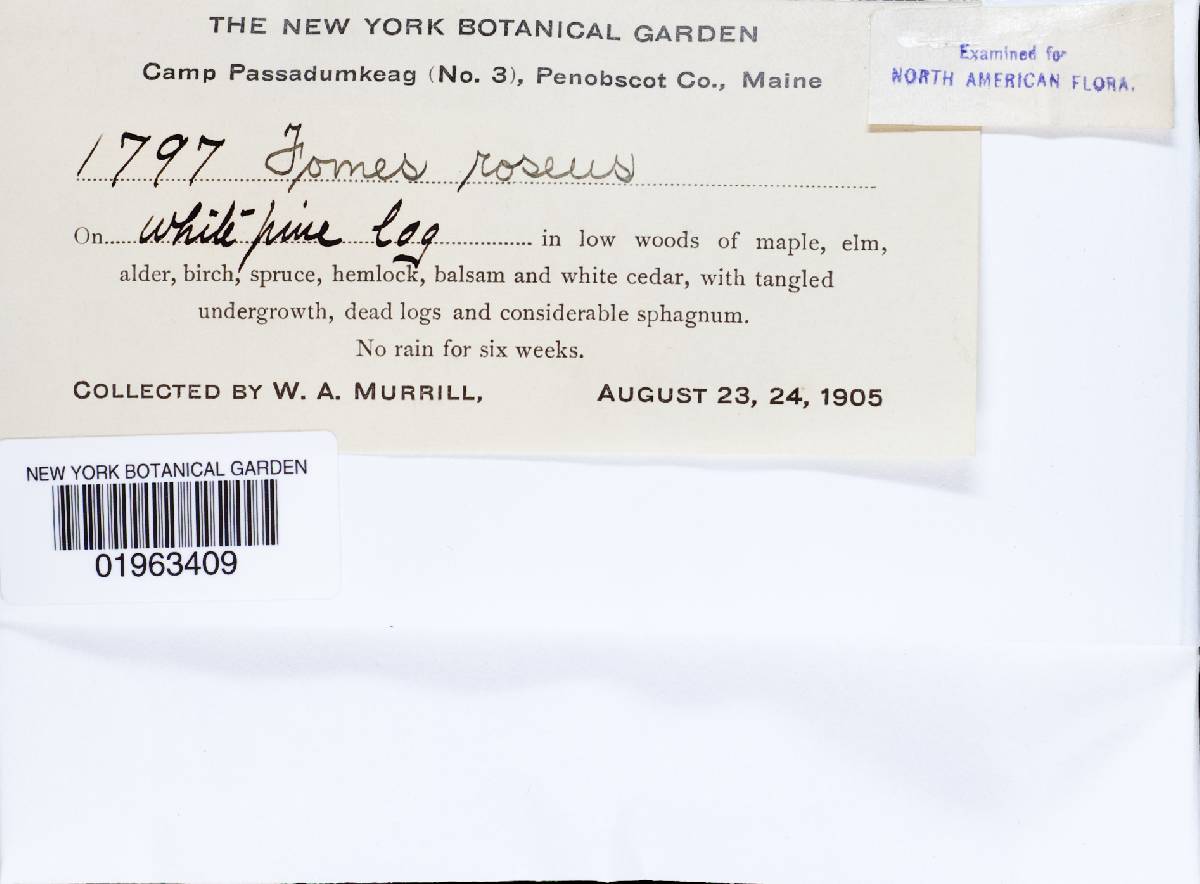 THE NEW YORK BOTANICAL GARDEN
Camp Passadumkeag (No. 3), Penobscot Co., Maine
Examined for
NORTH AMERICAN FLORA.
1797 Fomes roseus
On white pine log in low woods of maple, elm,
alder, birch, spruce, hemlock, balsam and white cedar, with tangled
undergrowth, dead logs and considerable sphagnum.
No rain for six weeks.
COLLECTED BY W. A. MURRILL, AUGUST 23, 24, 1905
NEW YORK BOTANICAL GARDEN
01963409